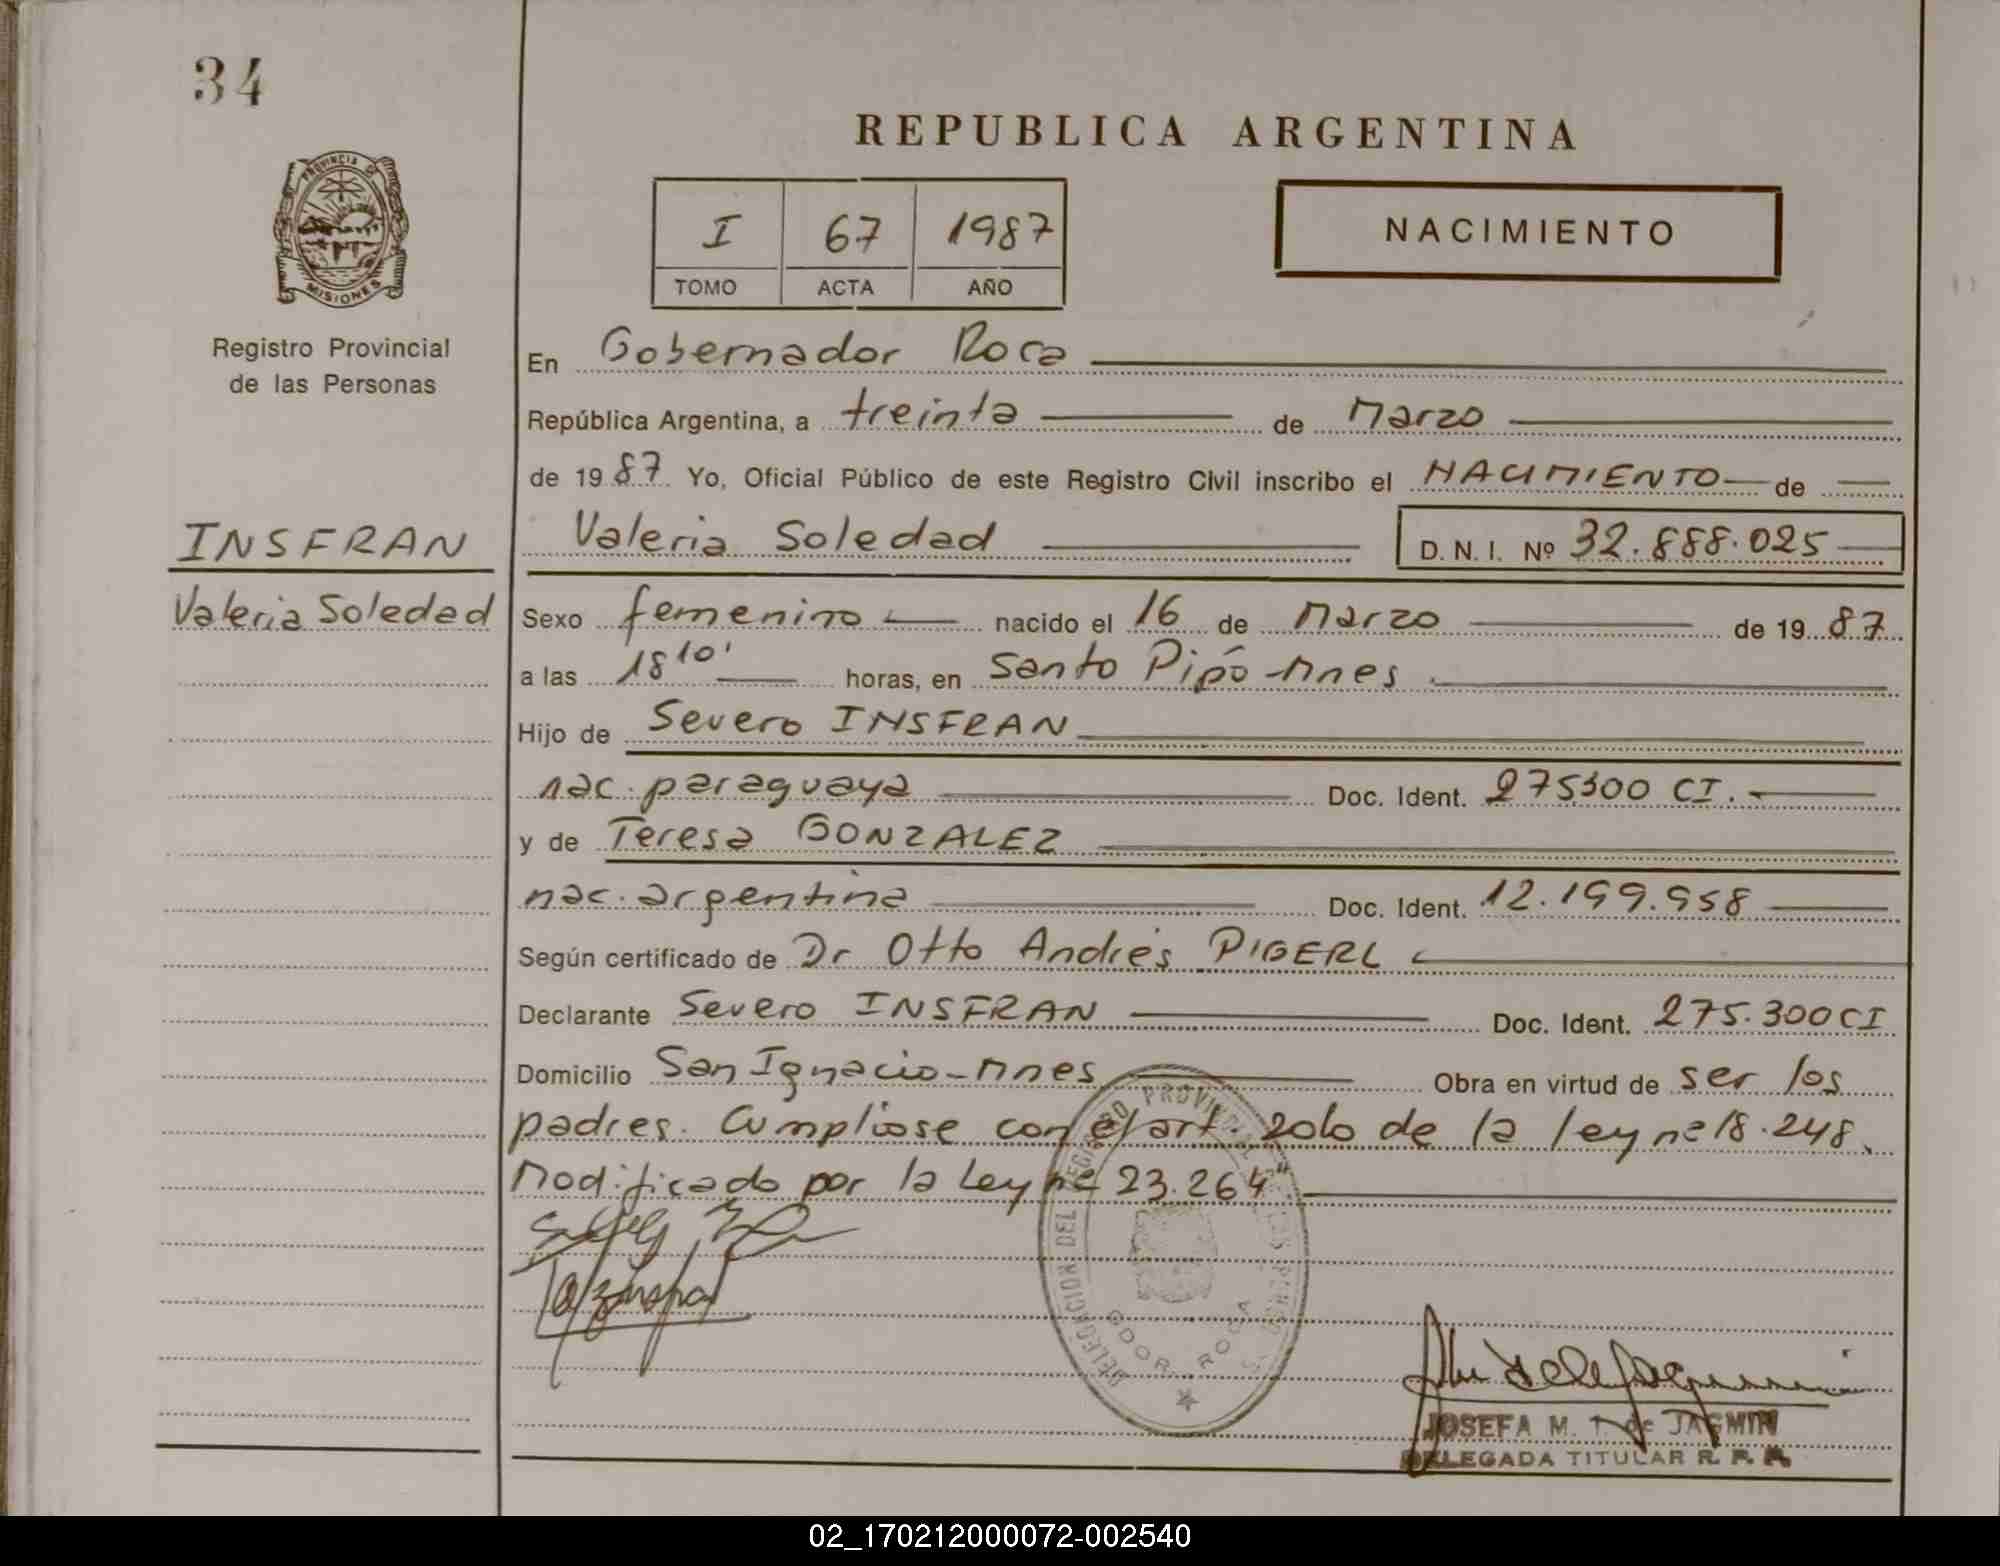 34
REPUBLICA ARGENTINA
PROVINCIA DE
MISIONES
I 67 1987
TOMO ACTA AÑO
NACIMIENTO
Registro Provincial
de las Personas
En Gobernador Roca
República Argentina, a treinta de Marzo
de 1987. Yo, Oficial Público de este Registro Civil inscribo el NACIMIENTO de
INSFRAN
Valeria Soledad D. N. I. Nº 32.888.025
Valeria Soledad
Sexo femenino nacido el 16 de Marzo de 1987
a las 18 10' horas, en Santo Pipó - Mnes
Hijo de Severo INSFRAN
nac. paraguaya Doc. Ident. 275300 CI.
y de Teresa GONZALEZ
nac. argentina Doc. Ident. 12.199.958
Según certificado de Dr Otto Andrés PIGERL
Declarante Severo INSFRAN Doc. Ident. 275.300 CI
Domicilio San Ignacio - Mnes Obra en virtud de ser los
padres. Cumpliose con el art. de la ley nº 18.248.
Modificado por la Ley nº 23.264"
DELEGACION DEL REGISTRO PROVINCIAL DE LAS PERSONAS
GDOR. ROCA
JOSEFA M. T. de JASMIN
DELEGADA TITULAR R. P. P.
02_170212000072-002540